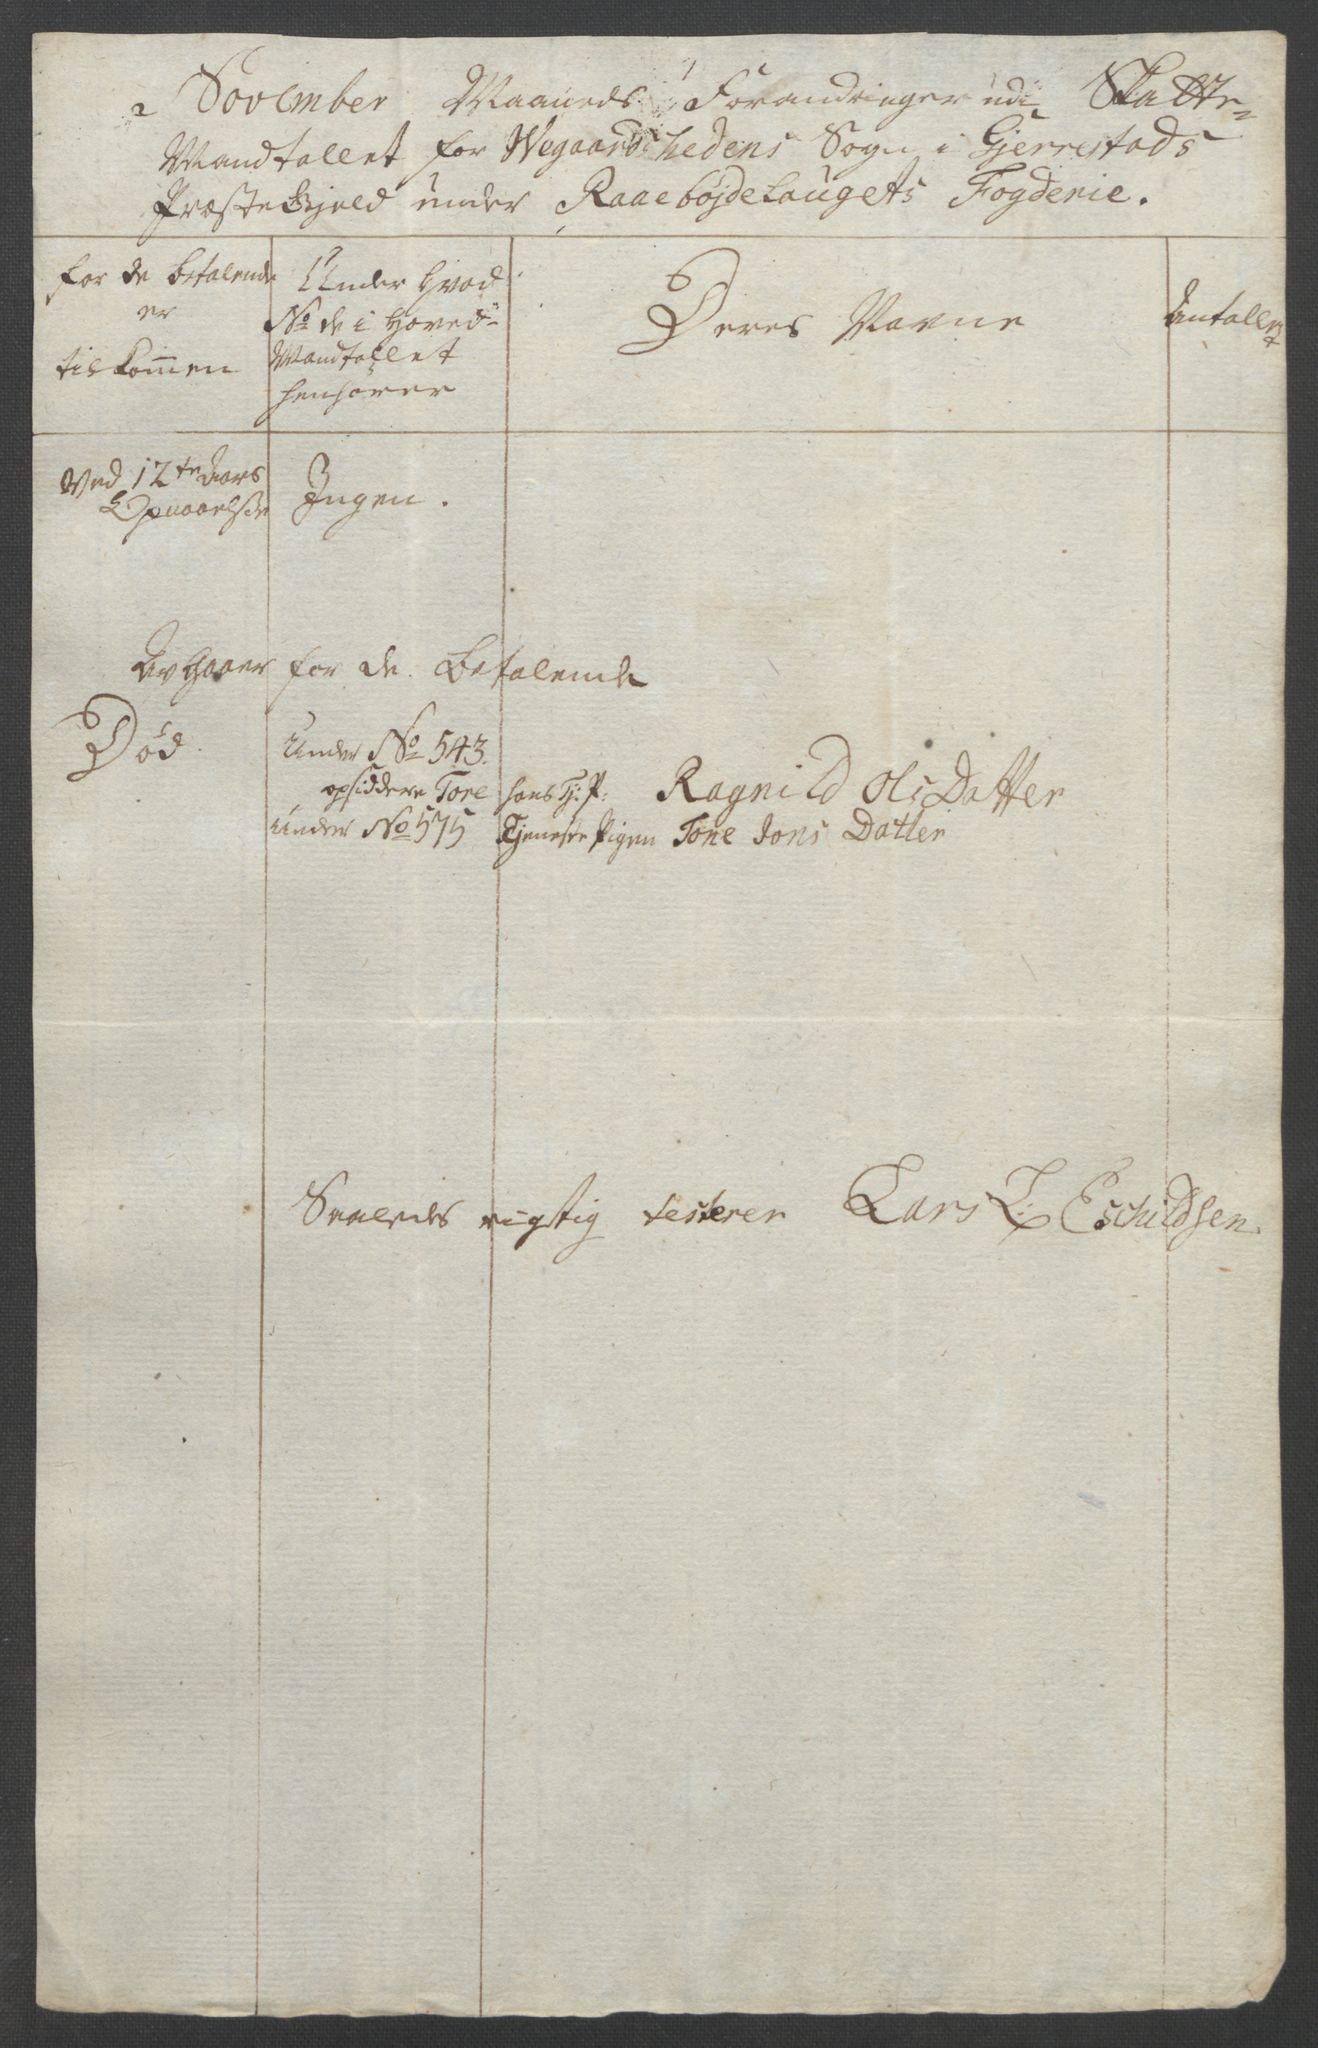 November Maaneds Forandringer udi Skatte-
Mandtallet for Wegaardshedens Sogn i Gjerrestads
Præstekjeld under Raaebøjdelaugets Fogderie.
for de betalende
er
tilkom̄en
Under hvad
No de i Hoved-
Mandtallet
henhører
Deres Navne
Antallet
Ved 12te Aars
Opnaaelse
Ingen.
Avgaaer for de Betalende
Død
Under No 543.
opsiddere Tore hans Tj: P: Ragnild Ols Datter
Under No 575 Tjeneste Pigen Tone Jons Datter
Saaledes rigtig testerer Lars L: Eschildsen